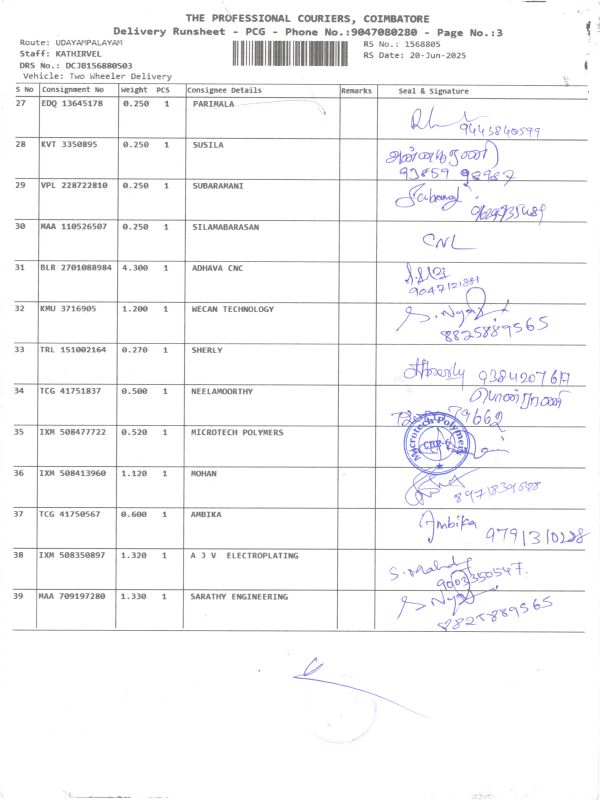 THE PROFESSIONAL COURIERS, COIMBATORE
Delivery Runsheet - PCG - Phone No.:9047080280 - Page No.:3
Route: UDAYAMPALAYAM
RS No.: 1568805
Staff: KATHIRVEL
RS Date: 20-Jun-2025
DRS No.: DCJB156880503
Vehicle: Two Wheeler Delivery
S No Consignment No Weight PCS Consignee Details Remarks Seal & Signature
27 EDQ 13645178 0.250 1 PARIMALA
28 KVT 3350895 0.250 1 SUSILA
29 VPL 228722810 0.250 1 SUBARAMANI
30 MAA 110526507 0.250 1 SILAMABARASAN CNL
31 BLR 2701088984 4.300 1 ADHAVA CNC
32 KMU 3716905 1.200 1 WECAN TECHNOLOGY
8825889565
33 TRL 151002164 0.270 1 SHERLY
34 TCG 41751837 0.500 1 NEELAMOORTHY
35 IXM 508477722 0.520 1 MICROTECH POLYMERS Microtech Polymers
36 IXM 508413960 1.120 1 MOHAN
37 TCG 41750567 0.600 1 AMBIKA Ambika
38 IXM 508350897 1.320 1 A J V ELECTROPLATING
9003350547.
39 MAA 709197280 1.330 1 SARATHY ENGINEERING
8825889565